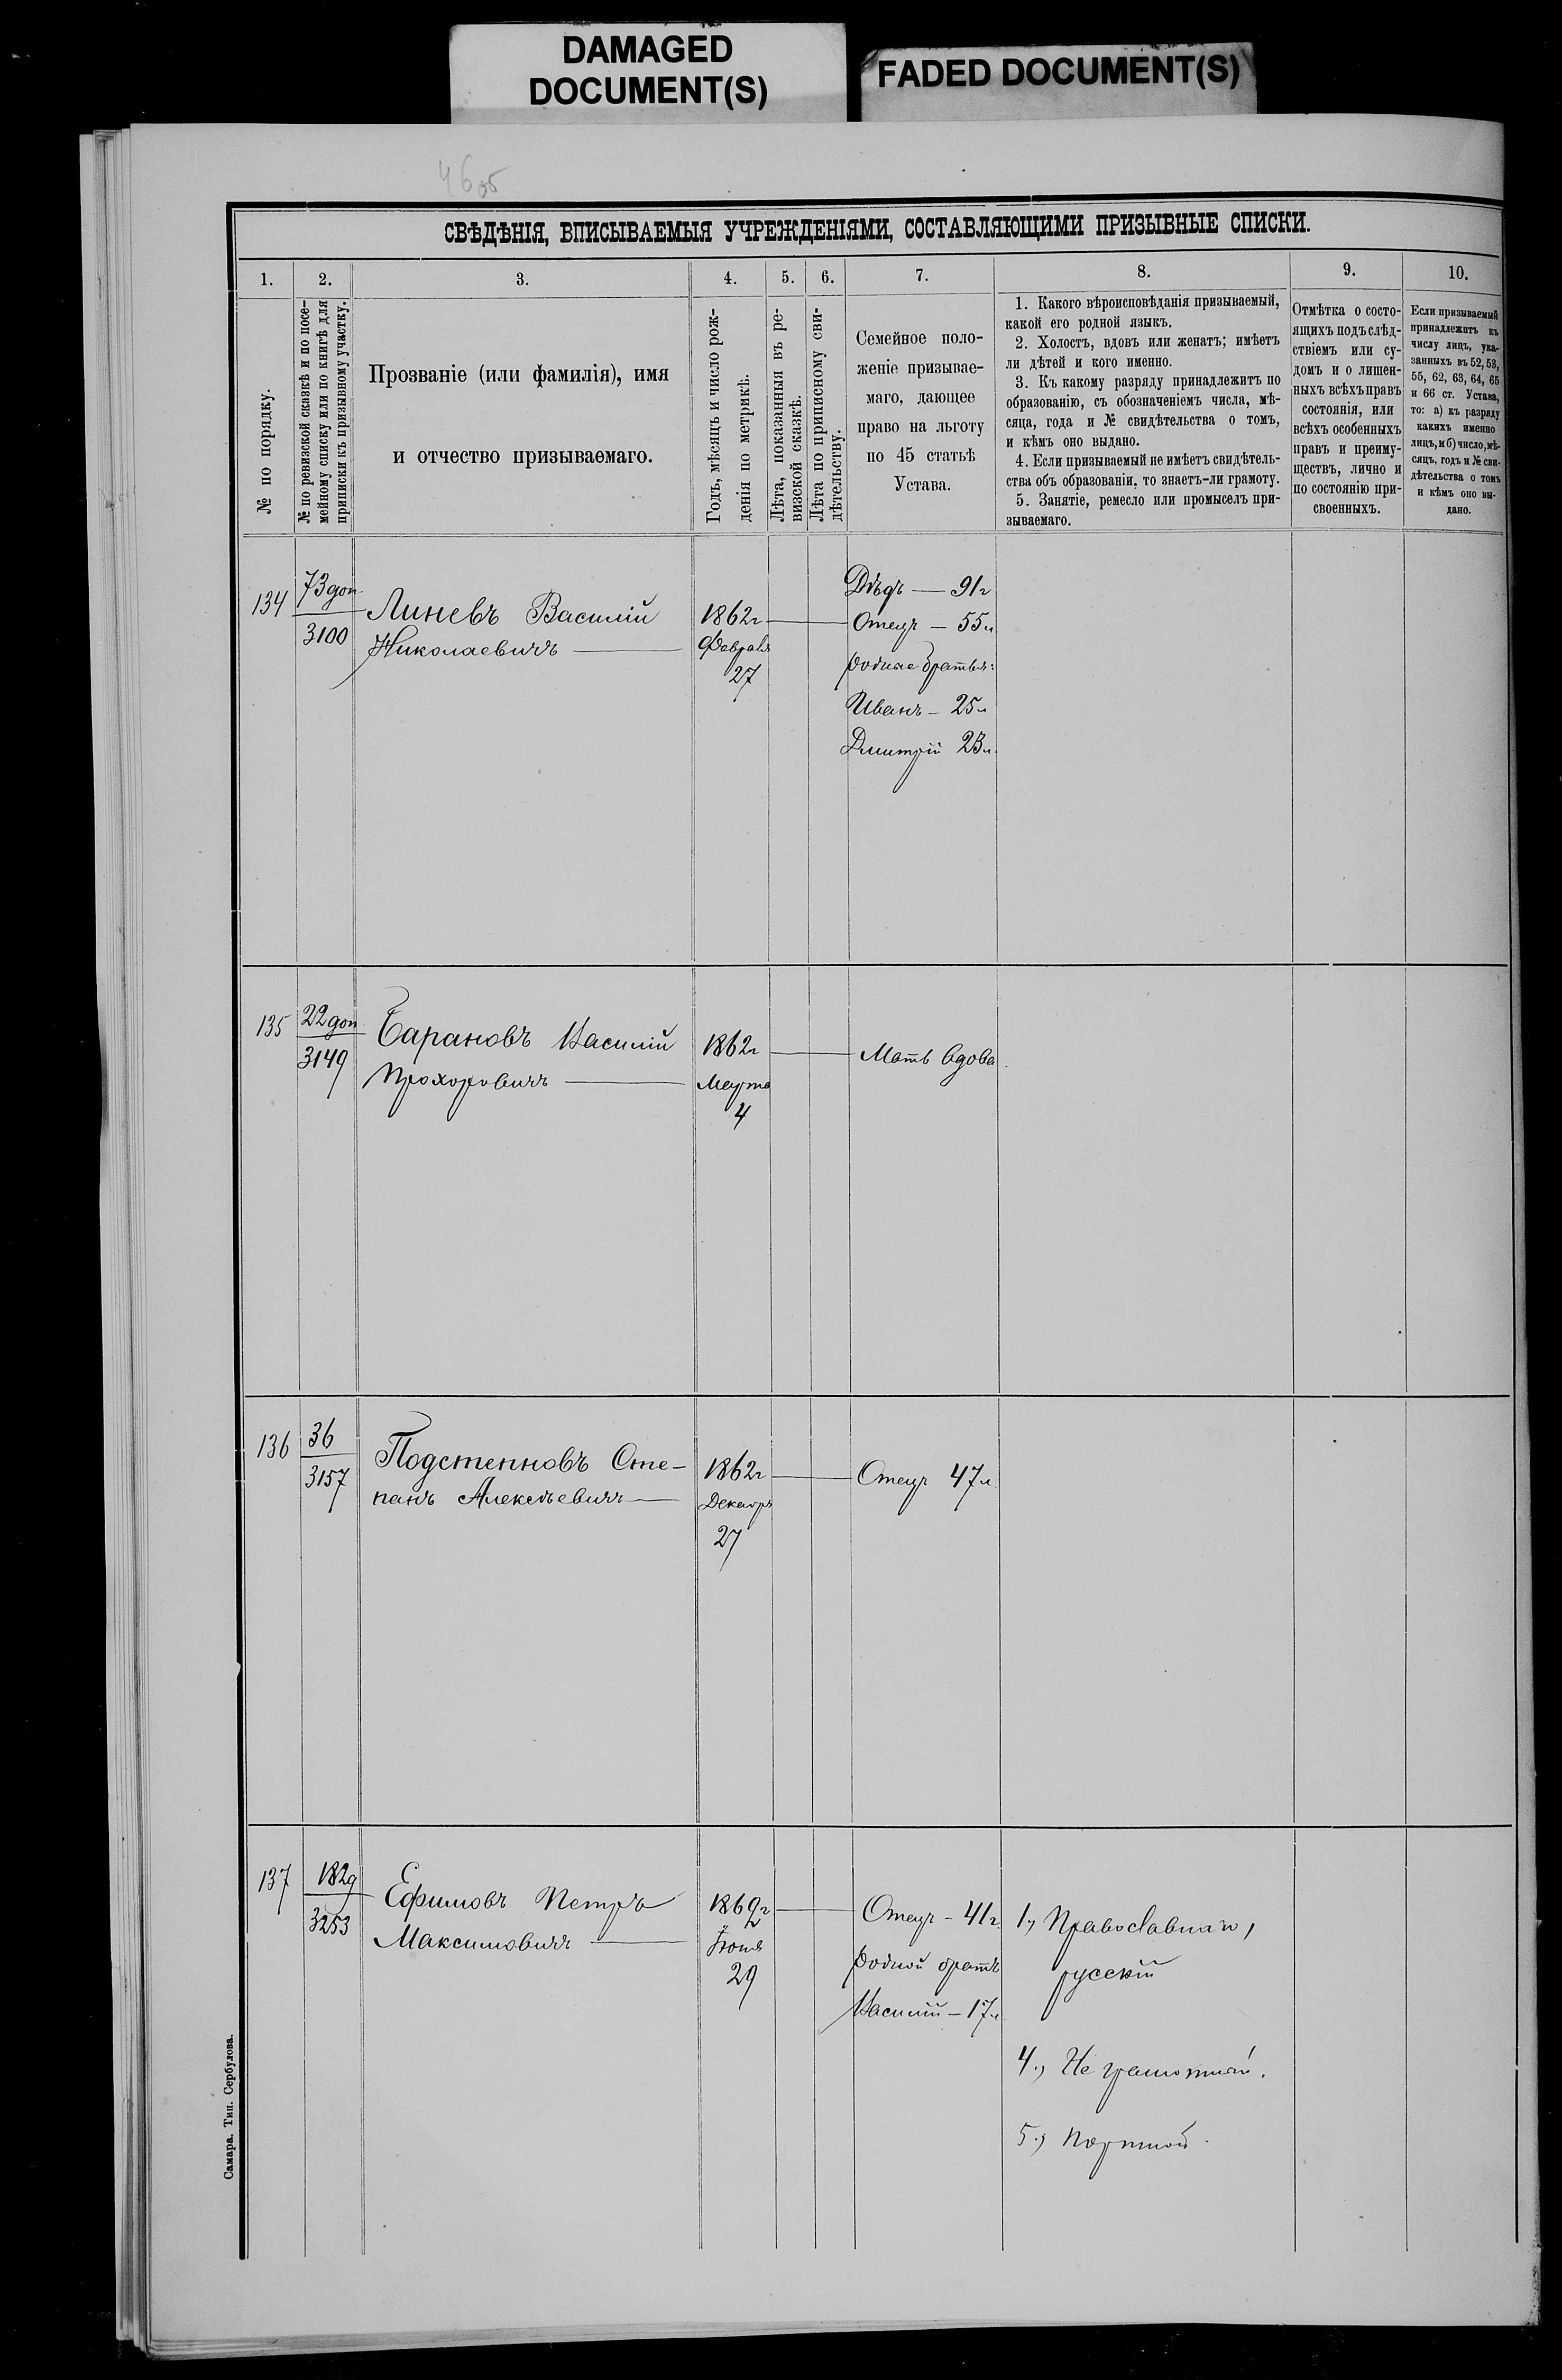 DAMAGED
DOCUMENT(S)
FADED DOCUMENT(S)
4605
СВѢДѢНІЯ, ВПИСЫВАЕМЫЯ УЧРЕЖДЕНІЯМИ, СОСТАВЛЯЮЩИМИ ПРИЗЫВНЫЕ СПИСКИ.
1.
2.
3.
4.
5.
6.
7.
8.
9.
10.
№ по порядку.
№ по ревизской сказкѣ и по посе-
мейному списку или по книгѣ для
приписки къ призывному участку.
Прозваніе (или фамилія), имя
и отчество призываемаго.
Годъ, мѣсяцъ и число рож-
денія по метрикѣ.
Лѣта, показанныя въ ре-
визской сказкѣ.
Лѣта по приписному сви-
дѣтельству.
Семейное поло-
женіе призывае-
маго, дающее
право на льготу
по 45 статьѣ
Устава.
1. Какого вѣроисповѣданія призываемый,
какой его родной языкъ.
2. Холостъ, вдовъ или женатъ; имѣетъ
ли дѣтей и кого именно.
3. Къ какому разряду принадлежитъ по
образованію, съ обозначеніемъ числа, мѣ-
сяца, года и № свидѣтельства о томъ,
и кѣмъ оно выдано.
4. Если призываемый не имѣетъ свидѣтель-
ства объ образованіи, то знаетъ-ли грамоту.
5. Занятіе, ремесло или промыселъ при-
зываемаго.
Отмѣтка о состо-
ящихъ подъ слѣд-
ствіемъ или су-
домъ и о лишен-
ныхъ всѣхъ правъ
состоянія, или
всѣхъ особенныхъ
правъ и преиму-
ществъ, лично и
по состоянію при-
своенныхъ.
Если призываемый
принадлежитъ къ
числу лицъ, ука-
занныхъ въ 52, 53,
55, 62, 63, 64, 65
и 66 ст. Устава,
то: а) къ разряду
какихъ именно
лицъ, и б) число, мѣ-
сяцъ, годъ и № сви-
дѣтельства о томъ
и кѣмъ оно вы-
дано.
134
73 доп
3100
Линевъ Василій
Николаевичъ
1862г
Февраля
27
Дѣдъ — 91г
Отецъ — 55л
родные братья:
Иванъ — 25л
Дмитрій 23л
135
22 доп
3149
Барановъ Василій
Прохоровичъ
1862г
Марта
4
Мать вдова
136
36
3157
Подстепновъ Сте-
панъ Алексѣевичъ
1862г
Декабря
27
Отецъ 47л
137
182д
3253
Ефимовъ Петръ
Максимовичъ
1862г
Іюня
29
Отецъ — 41г.
родной братъ
Василій — 17л
1., Православнаго,
русскій
4., Не грамотный.
5., Портной.
Самара. Тип. Сербулова.